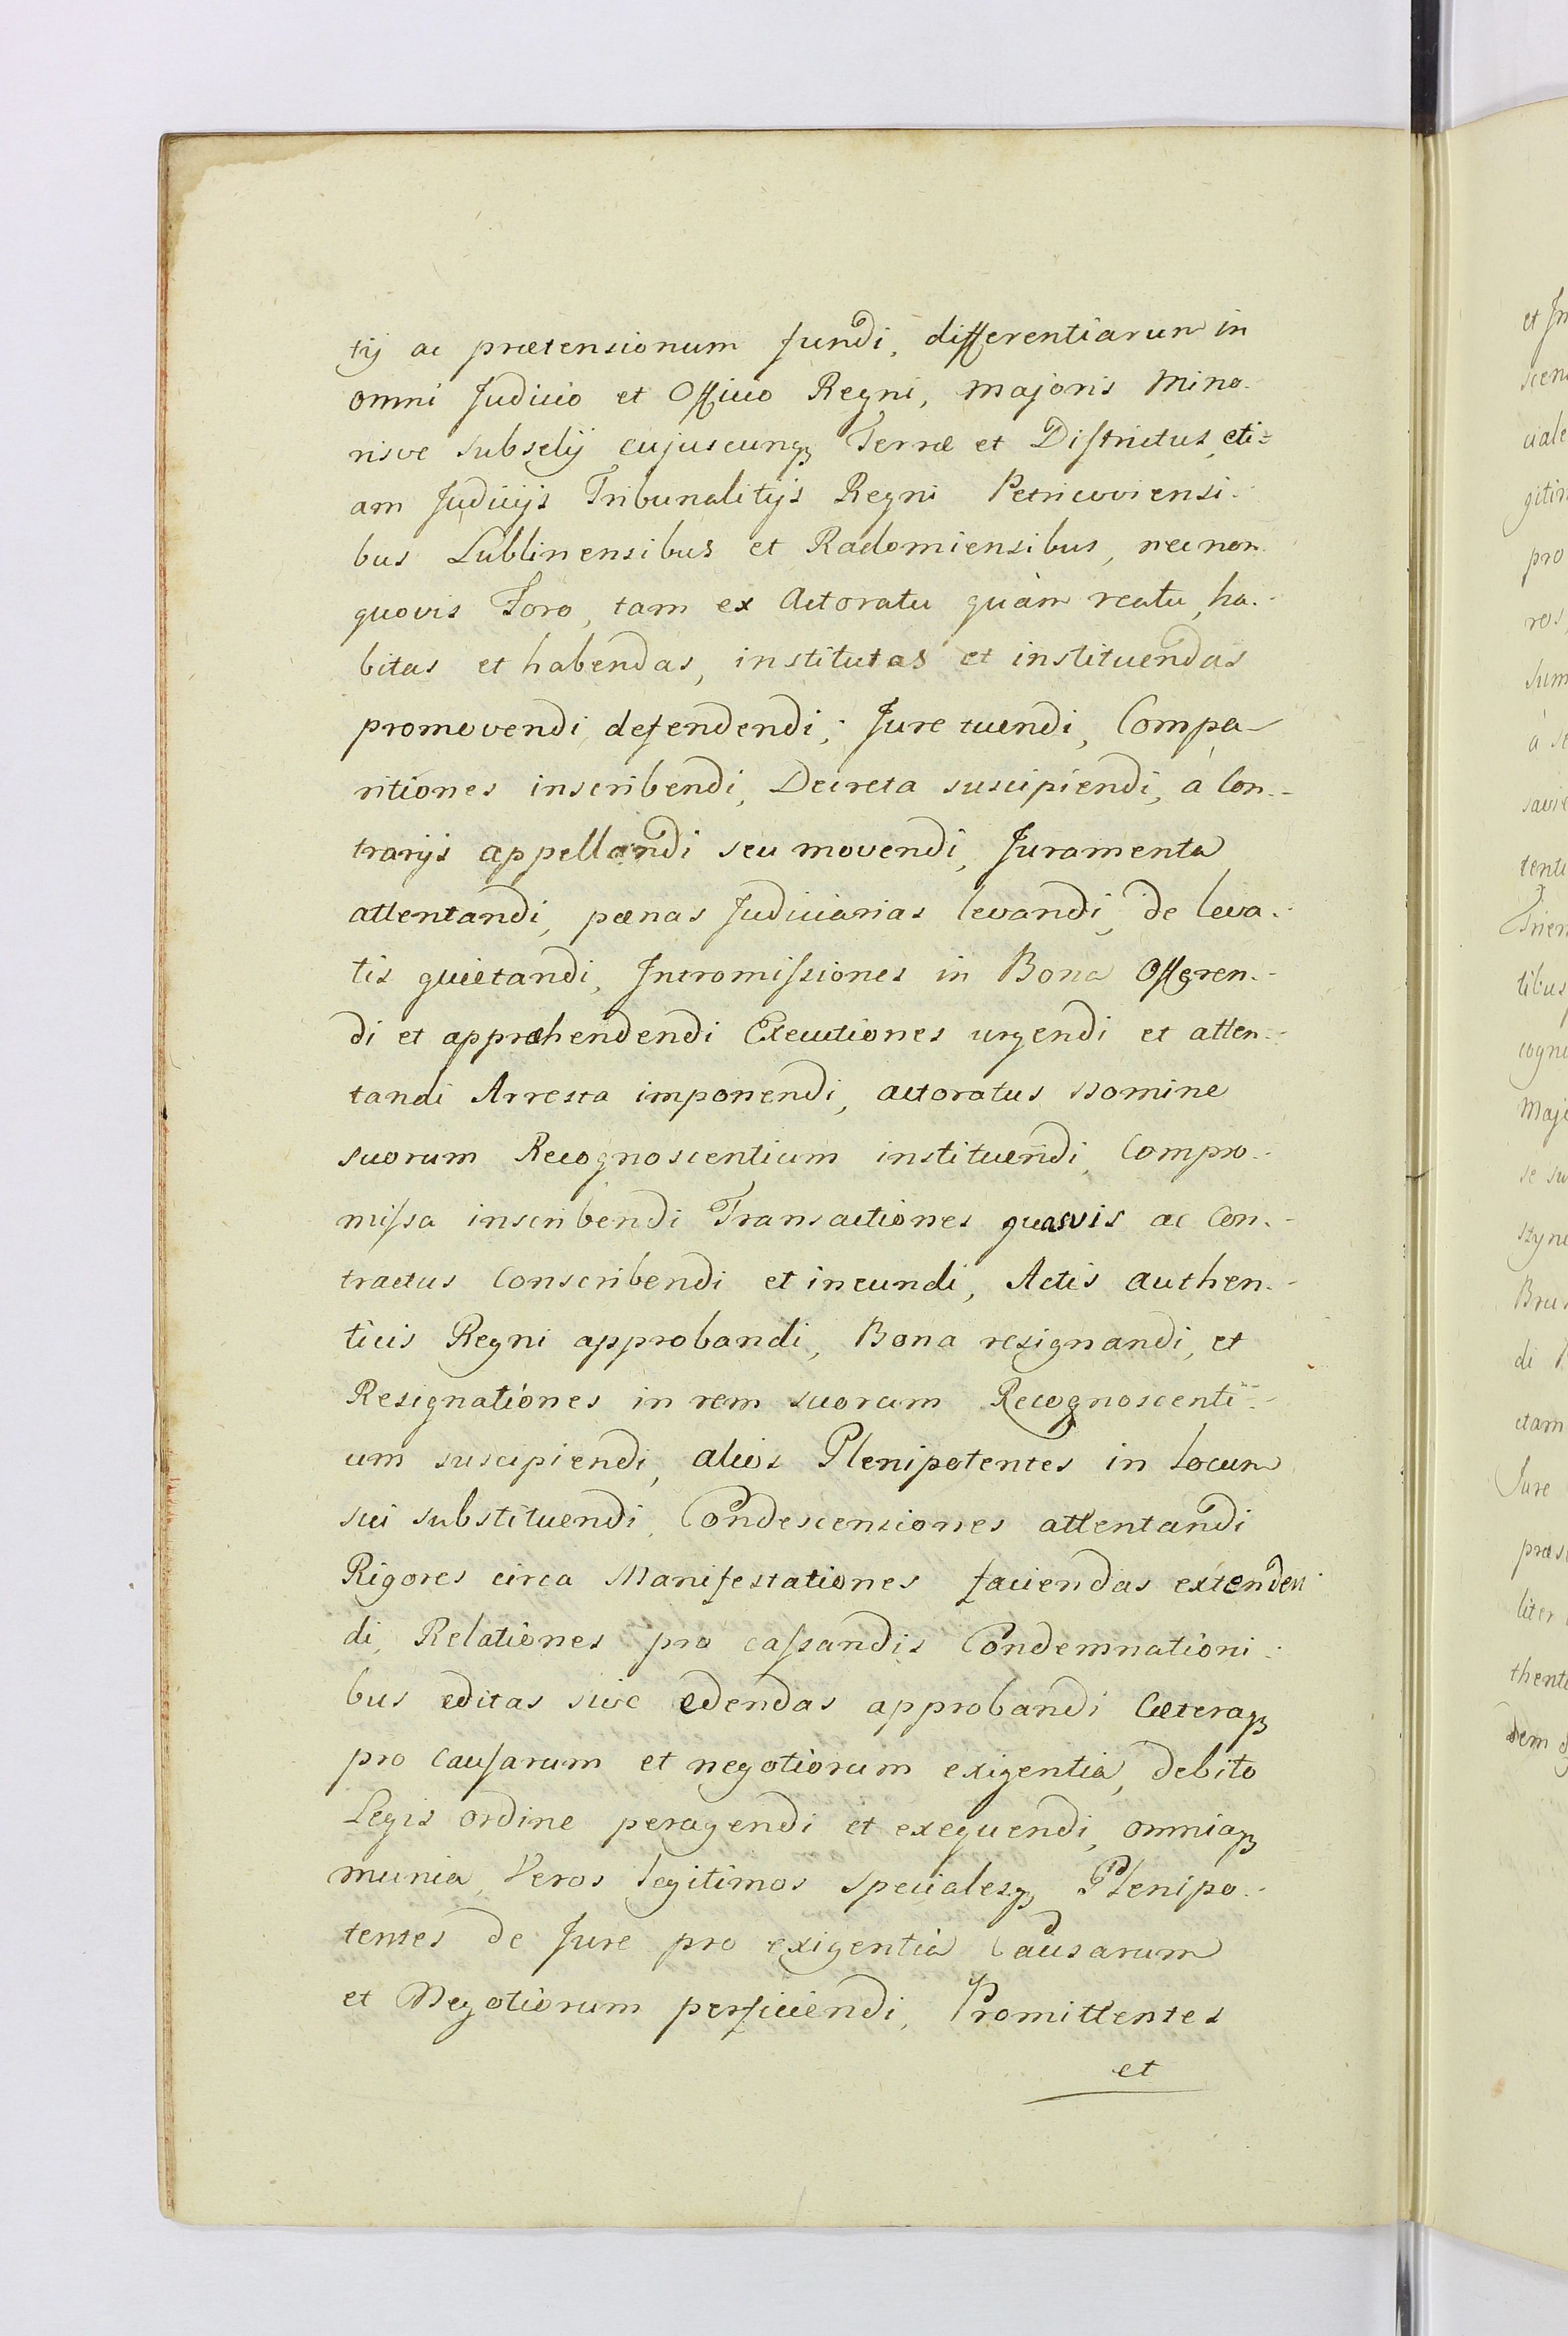 tij ac prætensionum fundi, differentiarum in
omni Judicio et Officio Regni, majoris Mino-
risve subselij cujuscunqȝ Terræ et Districtus, eti=
am Judicijs Tribunalitijs Regni Petricoviensi-
bus Lublinensibus et Radomiensibus, necnon
quovis Foro, tam ex Actoratu quàm reatu, ha-
bitas et habendas, institutas et instituendas
promovendi, defendendi, Jure tuendi, Compa-
ritiones inscribendi, Decreta suscipiendi, à Con-
trarijs appellandi seu movendi, Juramenta
attentandi, pænas Judiciarias levandi, de leva-
tis quietandi, Intromissiones in Bona Offeren-
di et appræhendendi Executiones urgendi et atten-
tandi Arresta imponendi, actoratus Nomine
suorum Recognoscentium instituendi, Compro-
missa inscribendi Transactiones quasvis ac Con-
tractus Conscribendi et ineundi, Actis authen-
ticis Regni approbandi, Bona resignandi, et
Resignationes in rem suorum Recognoscenti-
um suscipiendi, alios Plenipotentes in Locum
sui substituendi, Condescensiones attentandi
Rigores circa Manifestationes faciendas extenden-
di, Relationes pro cassandis Condemnationi-
bus editas sive edendas approbandi Cæteraqȝ
pro Causarum et negotiorum exigentia, debito
Legis ordine peragendi et exequendi, omniaqȝ
munia, Veros legitimos specialesqȝ Plenipo-
tentes de Jure pro exigentia Causarum
et Negotiorum perficiendi, Promittentes
et
et
scen
ciale
gitim
pro
ros
sum
à
tente
tibus
cogno
Maje
se su
styne
di
ctam
Jure
præs
liter
thente
dem